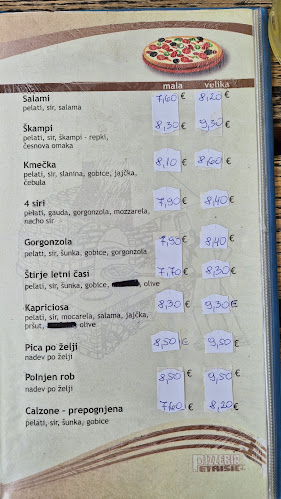 mala velika
Salami 7,60 € 8,20 €
pelati, sir, salama
Škampi 8,30 € 9,30 €
pelati, sir, škampi - repki,
česnova omaka
Kmečka 8,10 € 8,60 €
pelati, sir, slanina, gobice, jajčka,
čebula
4 siri 7,90 € 8,40 €
pelati, gauda, gorgonzola, mozzarela,
nacho sir
Gorgonzola 7,90 € 8,40 €
pelati, sir, šunka, gobice, gorgonzola
Štirje letni časi 7,70 € 8,30 €
pelati, sir, šunka, gobice, olive
Kapriciosa 8,30 € 9,30 €
pelati, sir, mocarela, salama, jajčka,
pršut, olive
Pica po želji 8,50 € 9,50 €
nadev po želji
Polnjen rob 8,50 € 9,50 €
nadev po želji
Calzone - prepognjena 7,60 € 8,20 €
pelati, sir, šunka, gobice
PIZZERIA
PETRISIČ